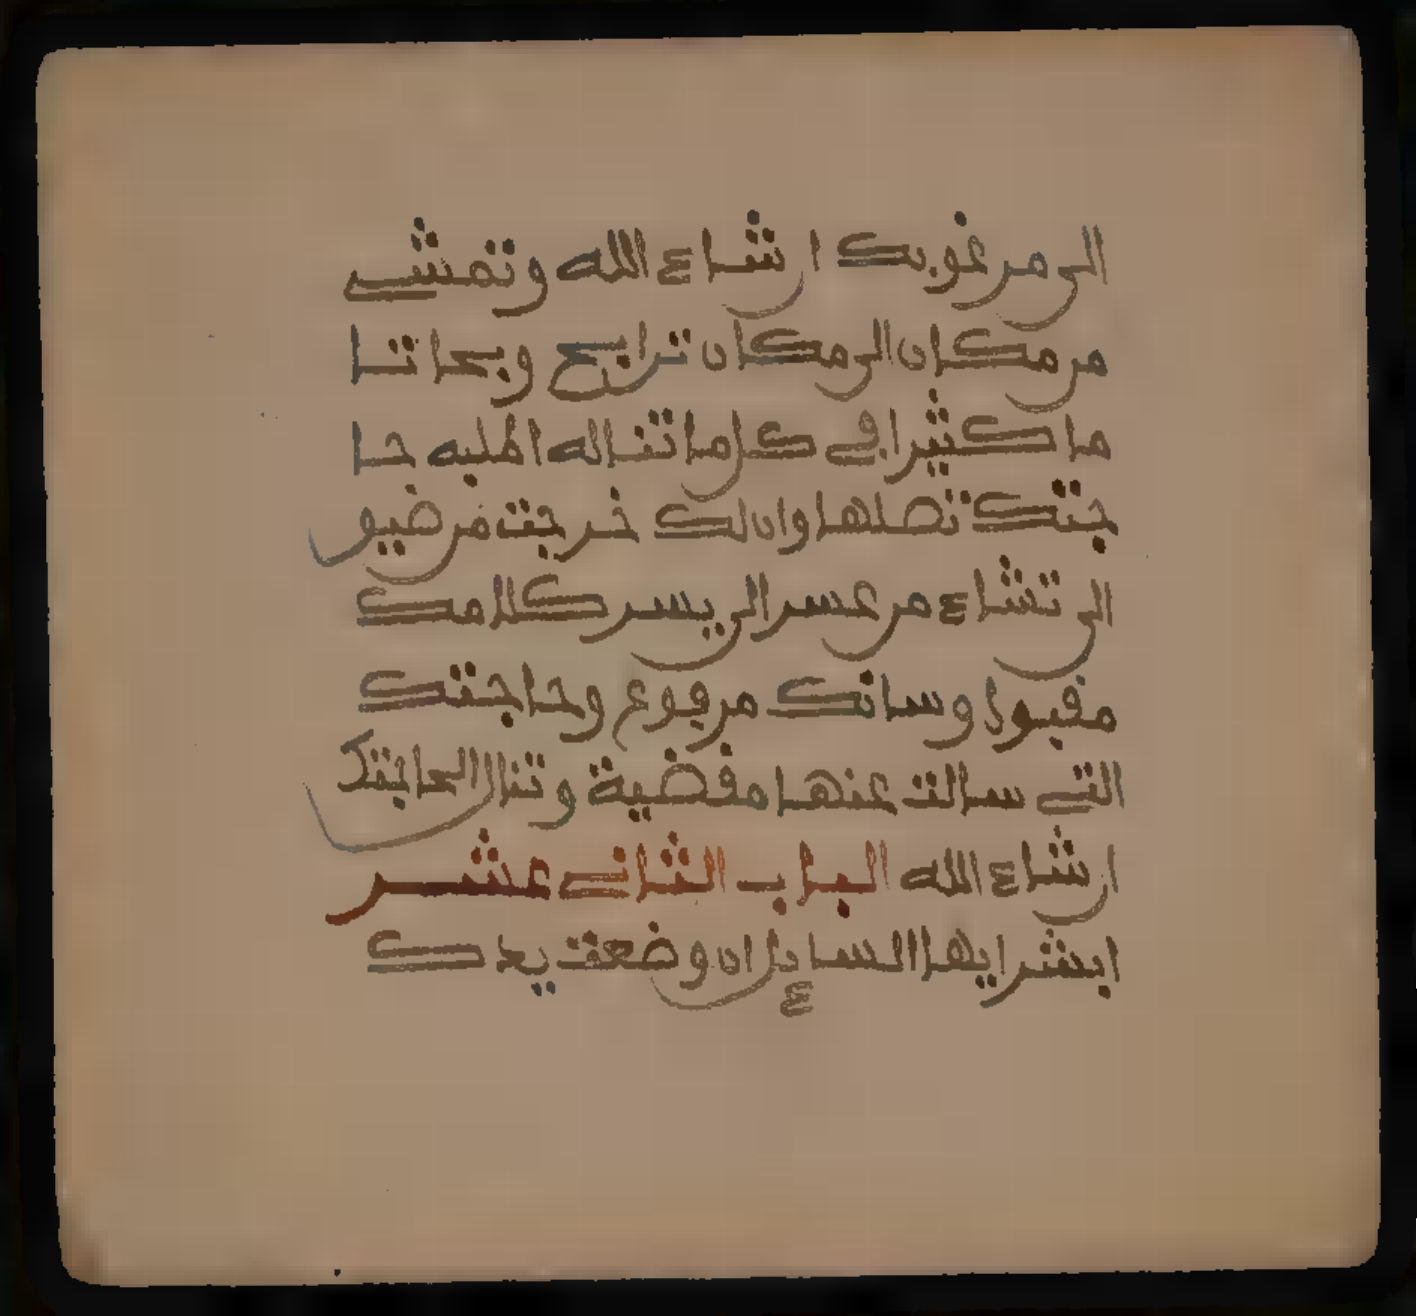 الى مرغوبك ان شاء الله وتمشى
من مكان الى مكان ترابح وبحاتا
ما كثيرا في كل ما تناله اطلبه حا
جتك تصلها وان لك خرجت من ضيو
الى تشاء من عسر الى يسر كلامك
مقبول وسانك مرفوع وحاجتك
التي سالت عنها مقضية وتنال
ان شاء الله الباب الثاني عشر
ابشر ايها السايل ان وضعت يدك